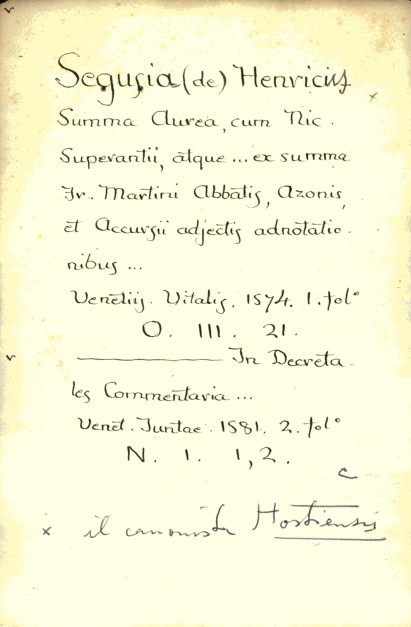 Segusia (de) Henricus
×
Summa Aurea, cum Nic.
Superantii, atque ... ex summa
Fr. Martini Abbatis, Azonis,
et Accursii adjectis adnotatio-
nibus ...
Venetiis. Vitalis. 1574. 1. fol°
O. III. 21.
———— In Decreta-
les Commentaria ...
Venet. Juntae. 1581. 2. fol°
N. 1. 1,2.
× il canonista Hostiensis